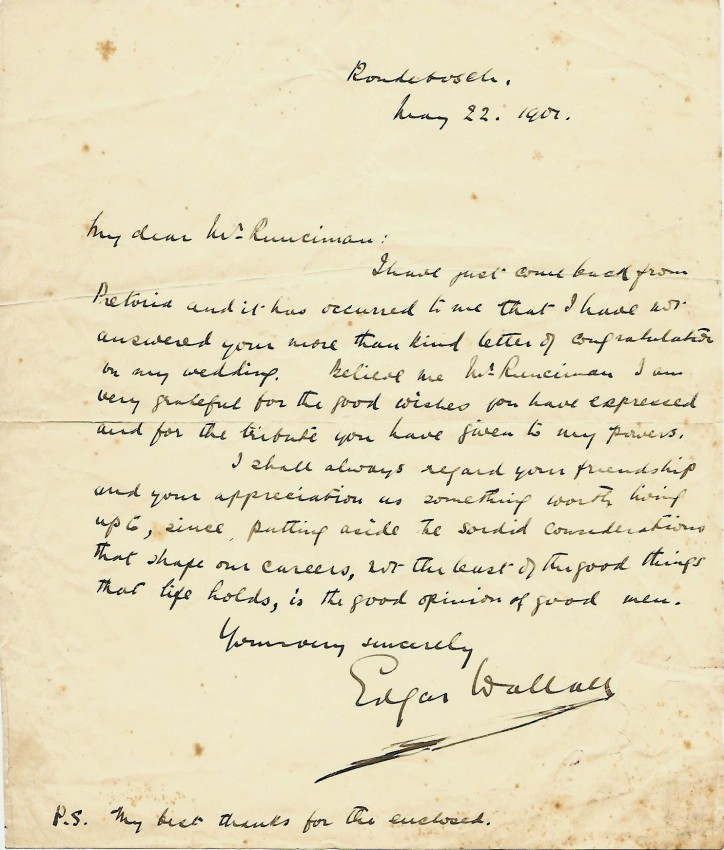 Rondebosch.
May 22. 1901.
My dear Mr Runciman:
I have just come back from
Pretoria and it has occurred to me that I have not
answered your more than kind letter of congratulation
on my wedding. Believe me Mr Runciman I am
very grateful for the good wishes you have expressed
and for the tribute you have given to my powers.
I shall always regard your friendship
and your appreciation as something worth living
up to, since, putting aside the sordid considerations
that shape our careers, not the least of the good things
that life holds, is the good opinion of good men.
Yours very sincerely
Edgar Wallace
P.S. My best thanks for the enclosed.